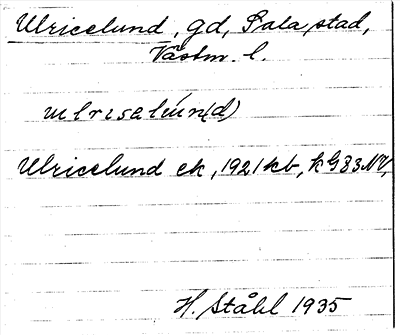 Ulricelund, gd, Sala stad,
Västm. l.
ulrisalún(d)
Ulricelund ek, 1921 kb, k G83 NV,
H. Ståhl 1935